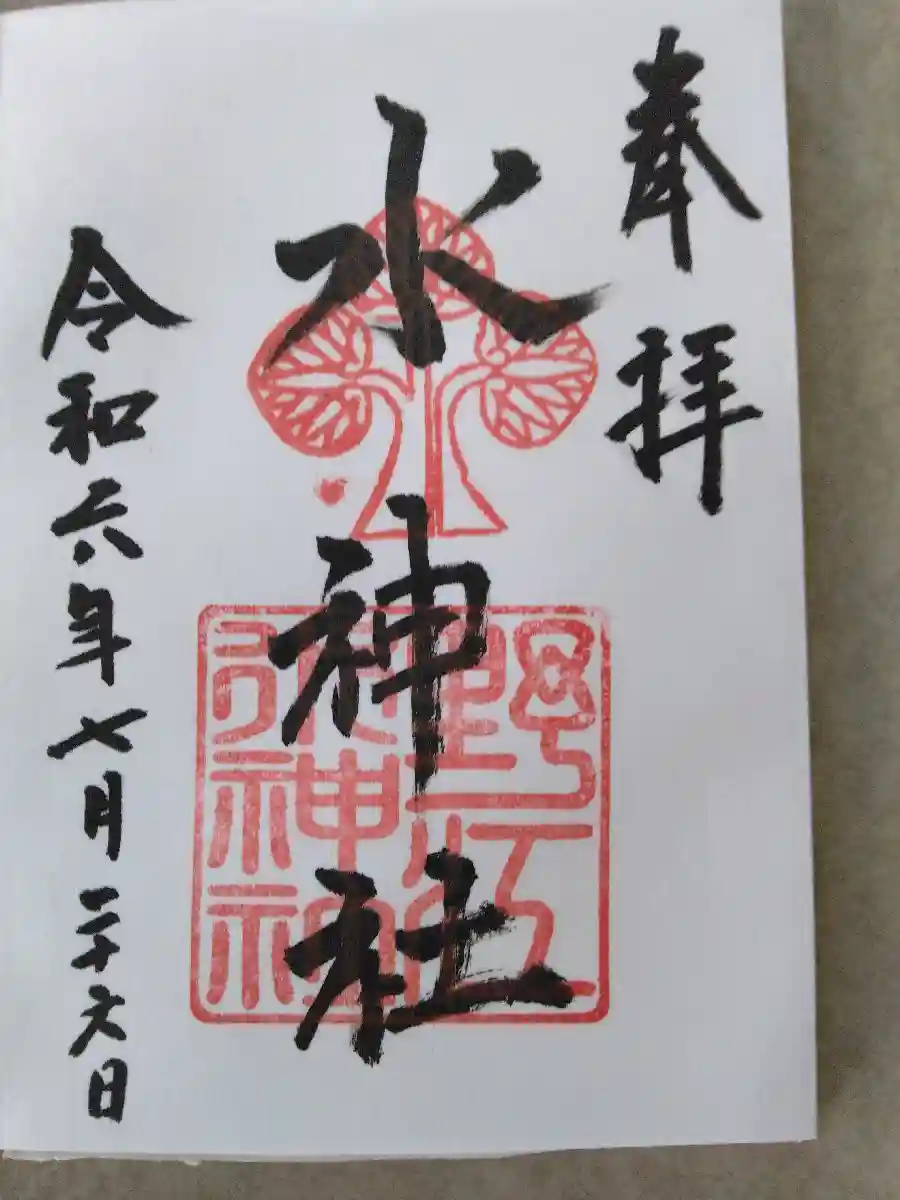 奉拝
水神社
野江
水神社
令和六年七月二十六日